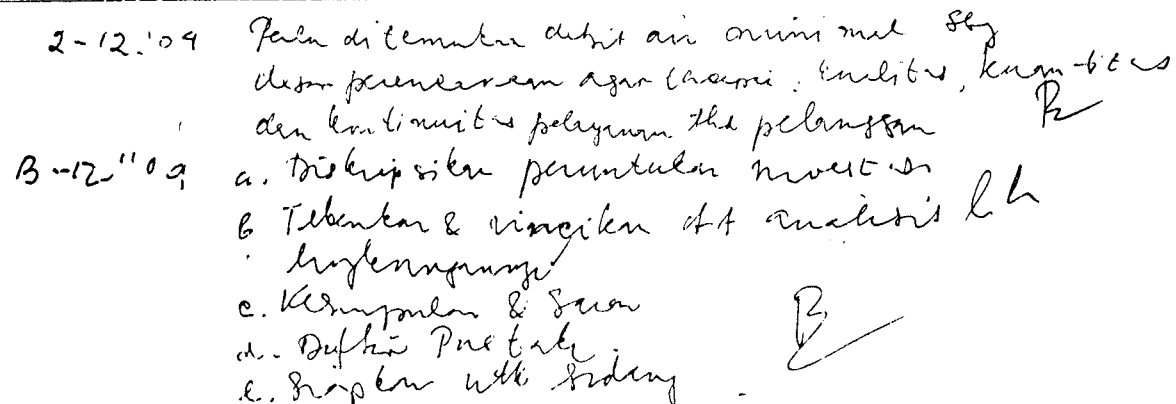 2-12-'09 Perlu ditemukan debit air minimal sbg
dasar perencanaan agar kualitas, kuantitas
dan kontinuitas pelayanan thd pelanggan
a. Diskripsikan peruntukan investasi
b. Tekankan & rincikan analisis
c. Kesimpulan & Saran
d. Daftar Pustaka.
e. Siapkan utk Sidang